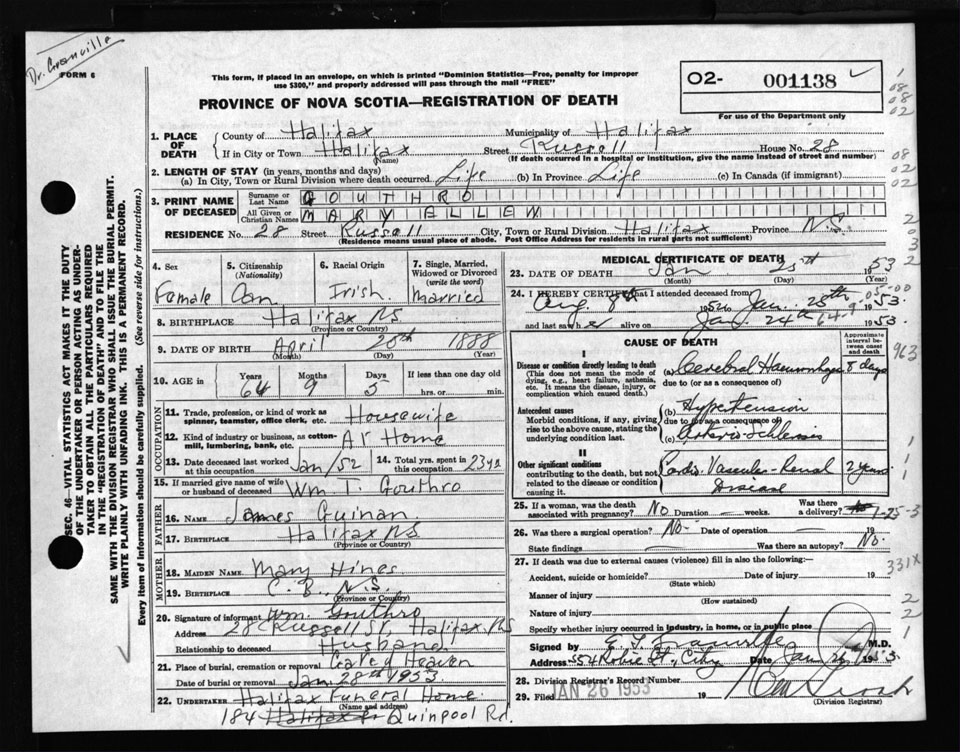 Dr. Granville
FORM 6
This form, if placed in an envelope, on which is printed "Dominion Statistics—Free, penalty for improper
use $300," and properly addressed will pass through the mail "FREE"
O2- 001138 ✓
For use of the Department only
PROVINCE OF NOVA SCOTIA—REGISTRATION OF DEATH
1. PLACE OF DEATH County of Halifax Municipality of Halifax
If in City or Town Halifax (Name) Street Russell House No. 28
(If death occurred in a hospital or institution, give the name instead of street and number)
2. LENGTH OF STAY (in years, months and days)
(a) In City, Town or Rural Division where death occurred Life (b) In Province Life (c) In Canada (if immigrant)
3. PRINT NAME OF DECEASED Surname or Last Name GOUTHRO
All Given or Christian Names MARY ELLEN
RESIDENCE No. 28 Street Russell City, Town or Rural Division Halifax Province N.S.
(Residence means usual place of abode. Post Office Address for residents in rural parts not sufficient)
4. Sex Female
5. Citizenship (Nationality) Can.
6. Racial Origin Irish
7. Single, Married, Widowed or Divorced (write the word) Married
8. BIRTHPLACE Halifax NS
(Province or Country)
9. DATE OF BIRTH April 20th 1888
(Month) (Day) (Year)
10. AGE in Years Months Days If less than one day old
64 9 5 hrs. or min.
OCCUPATION
11. Trade, profession, or kind of work as spinner, teamster, office clerk, etc. Housewife
12. Kind of industry or business, as cotton-mill, lumbering, bank, etc. At Home
13. Date deceased last worked at this occupation Jan/52 14. Total yrs. spent in this occupation 23 ys
15. If married give name of wife or husband of deceased Wm. T. Gouthro
FATHER
16. NAME James Guinan
17. BIRTHPLACE Halifax NS
(Province or Country)
MOTHER
18. MAIDEN NAME Mary Hines
19. BIRTHPLACE C.B., N.S.
(Province or Country)
20. Signature of informant Wm. Gouthro
Address 28 Russell St, Halifax, NS
Relationship to deceased Husband
21. Place of burial, cremation or removal Gate of Heaven
Date of burial or removal Jan. 28th 1953
22. UNDERTAKER Halifax Funeral Home
(Name and address)
184 Quinpool Rd.
MEDICAL CERTIFICATE OF DEATH
23. DATE OF DEATH Jan 25th 1953
(Month) (Day)
24. I HEREBY CERTIFY that I attended deceased from
Aug. 8th 1952 Jan. 25th 1953.
and last saw her alive on Jan. 24th 1953.
CAUSE OF DEATH
Approximate interval between onset and death
I
Disease or condition directly leading to death
(This does not mean the mode of dying, e.g., heart failure, asthenia, etc. It means the disease, injury, or complication which caused death.)
(a) Cerebral Haemorrhage 8 days
due to (or as a consequence of)
Antecedent causes
Morbid conditions, if any, giving rise to the above cause, stating the underlying condition last.
(b) Hypertension
due to (or as a consequence of)
(c) Arterio-sclerosis
II
Other significant conditions
contributing to the death, but not related to the disease or condition causing it.
Cardio-Vascular-Renal Disease 2 years
25. If a woman, was the death associated with pregnancy? No Duration — weeks. Was there a delivery? No
26. Was there a surgical operation? No- Date of operation 19
State findings Was there an autopsy? No.
27. If death was due to external causes (violence) fill in also the following:—
Accident, suicide or homicide? Date of injury 19
(State which)
Manner of injury
(How sustained)
Nature of injury
Specify whether injury occurred in industry, in home, or in public place
Signed by E. F. Granville M.D.
Address 554 Robie St., City Date Jan 26 1953.
28. Division Registrar's Record Number
29. Filed JAN 26 1953 19
(Division Registrar)
SEC. 46—VITAL STATISTICS ACT MAKES IT THE DUTY
OF THE UNDERTAKER OR PERSON ACTING AS UNDER-
TAKER TO OBTAIN ALL THE PARTICULARS REQUIRED
IN THE "REGISTRATION OF DEATH" AND TO FILE THE
SAME WITH THE DIVISION REGISTRAR WHO SHALL ISSUE THE BURIAL PERMIT.
WRITE PLAINLY WITH UNFADING INK. THIS IS A PERMANENT RECORD.
Every item of Information should be carefully supplied. (See reverse side for instructions.)
1
08
08
02
08
02
02
2
0
3
2
963
1
1
1-25-3
331X
2
2
1